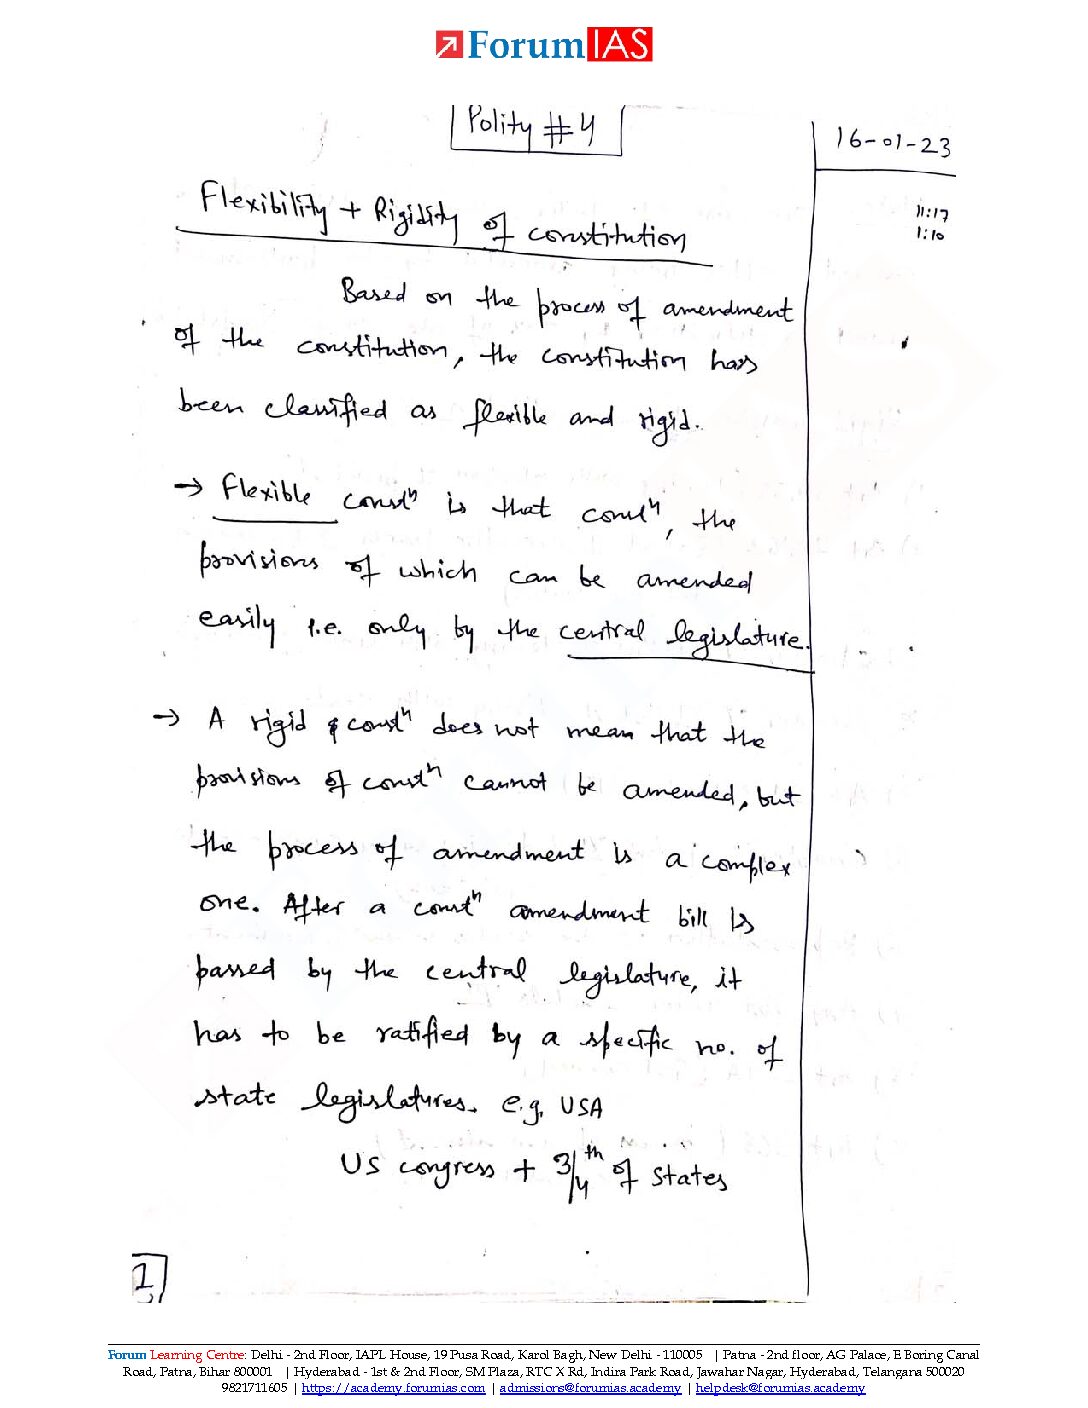 ForumIAS
Polity #4
16-01-23
11:17
1:10
Flexibility + Rigidity of constitution
Based on the process of amendment
of the constitution, the constitution has
been classified as flexible and rigid.
→ Flexible constⁿ is that constⁿ, the
provisions of which can be amended
easily i.e. only by the central legislature.
→ A rigid constⁿ does not mean that the
provisions of constⁿ cannot be amended, but
the process of amendment is a complex
one. After a constⁿ amendment bill is
passed by the central legislature, it
has to be ratified by a specific no. of
state legislatures. e.g. USA
US congress + 3/4th of states
1
Forum Learning Centre: Delhi - 2nd Floor, IAPL House, 19 Pusa Road, Karol Bagh, New Delhi - 110005 | Patna - 2nd floor, AG Palace, E Boring Canal
Road, Patna, Bihar 800001 | Hyderabad - 1st & 2nd Floor, SM Plaza, RTC X Rd, Indira Park Road, Jawahar Nagar, Hyderabad, Telangana 500020
9821711605 | https://academy.forumias.com | admissions@forumias.academy | helpdesk@forumias.academy